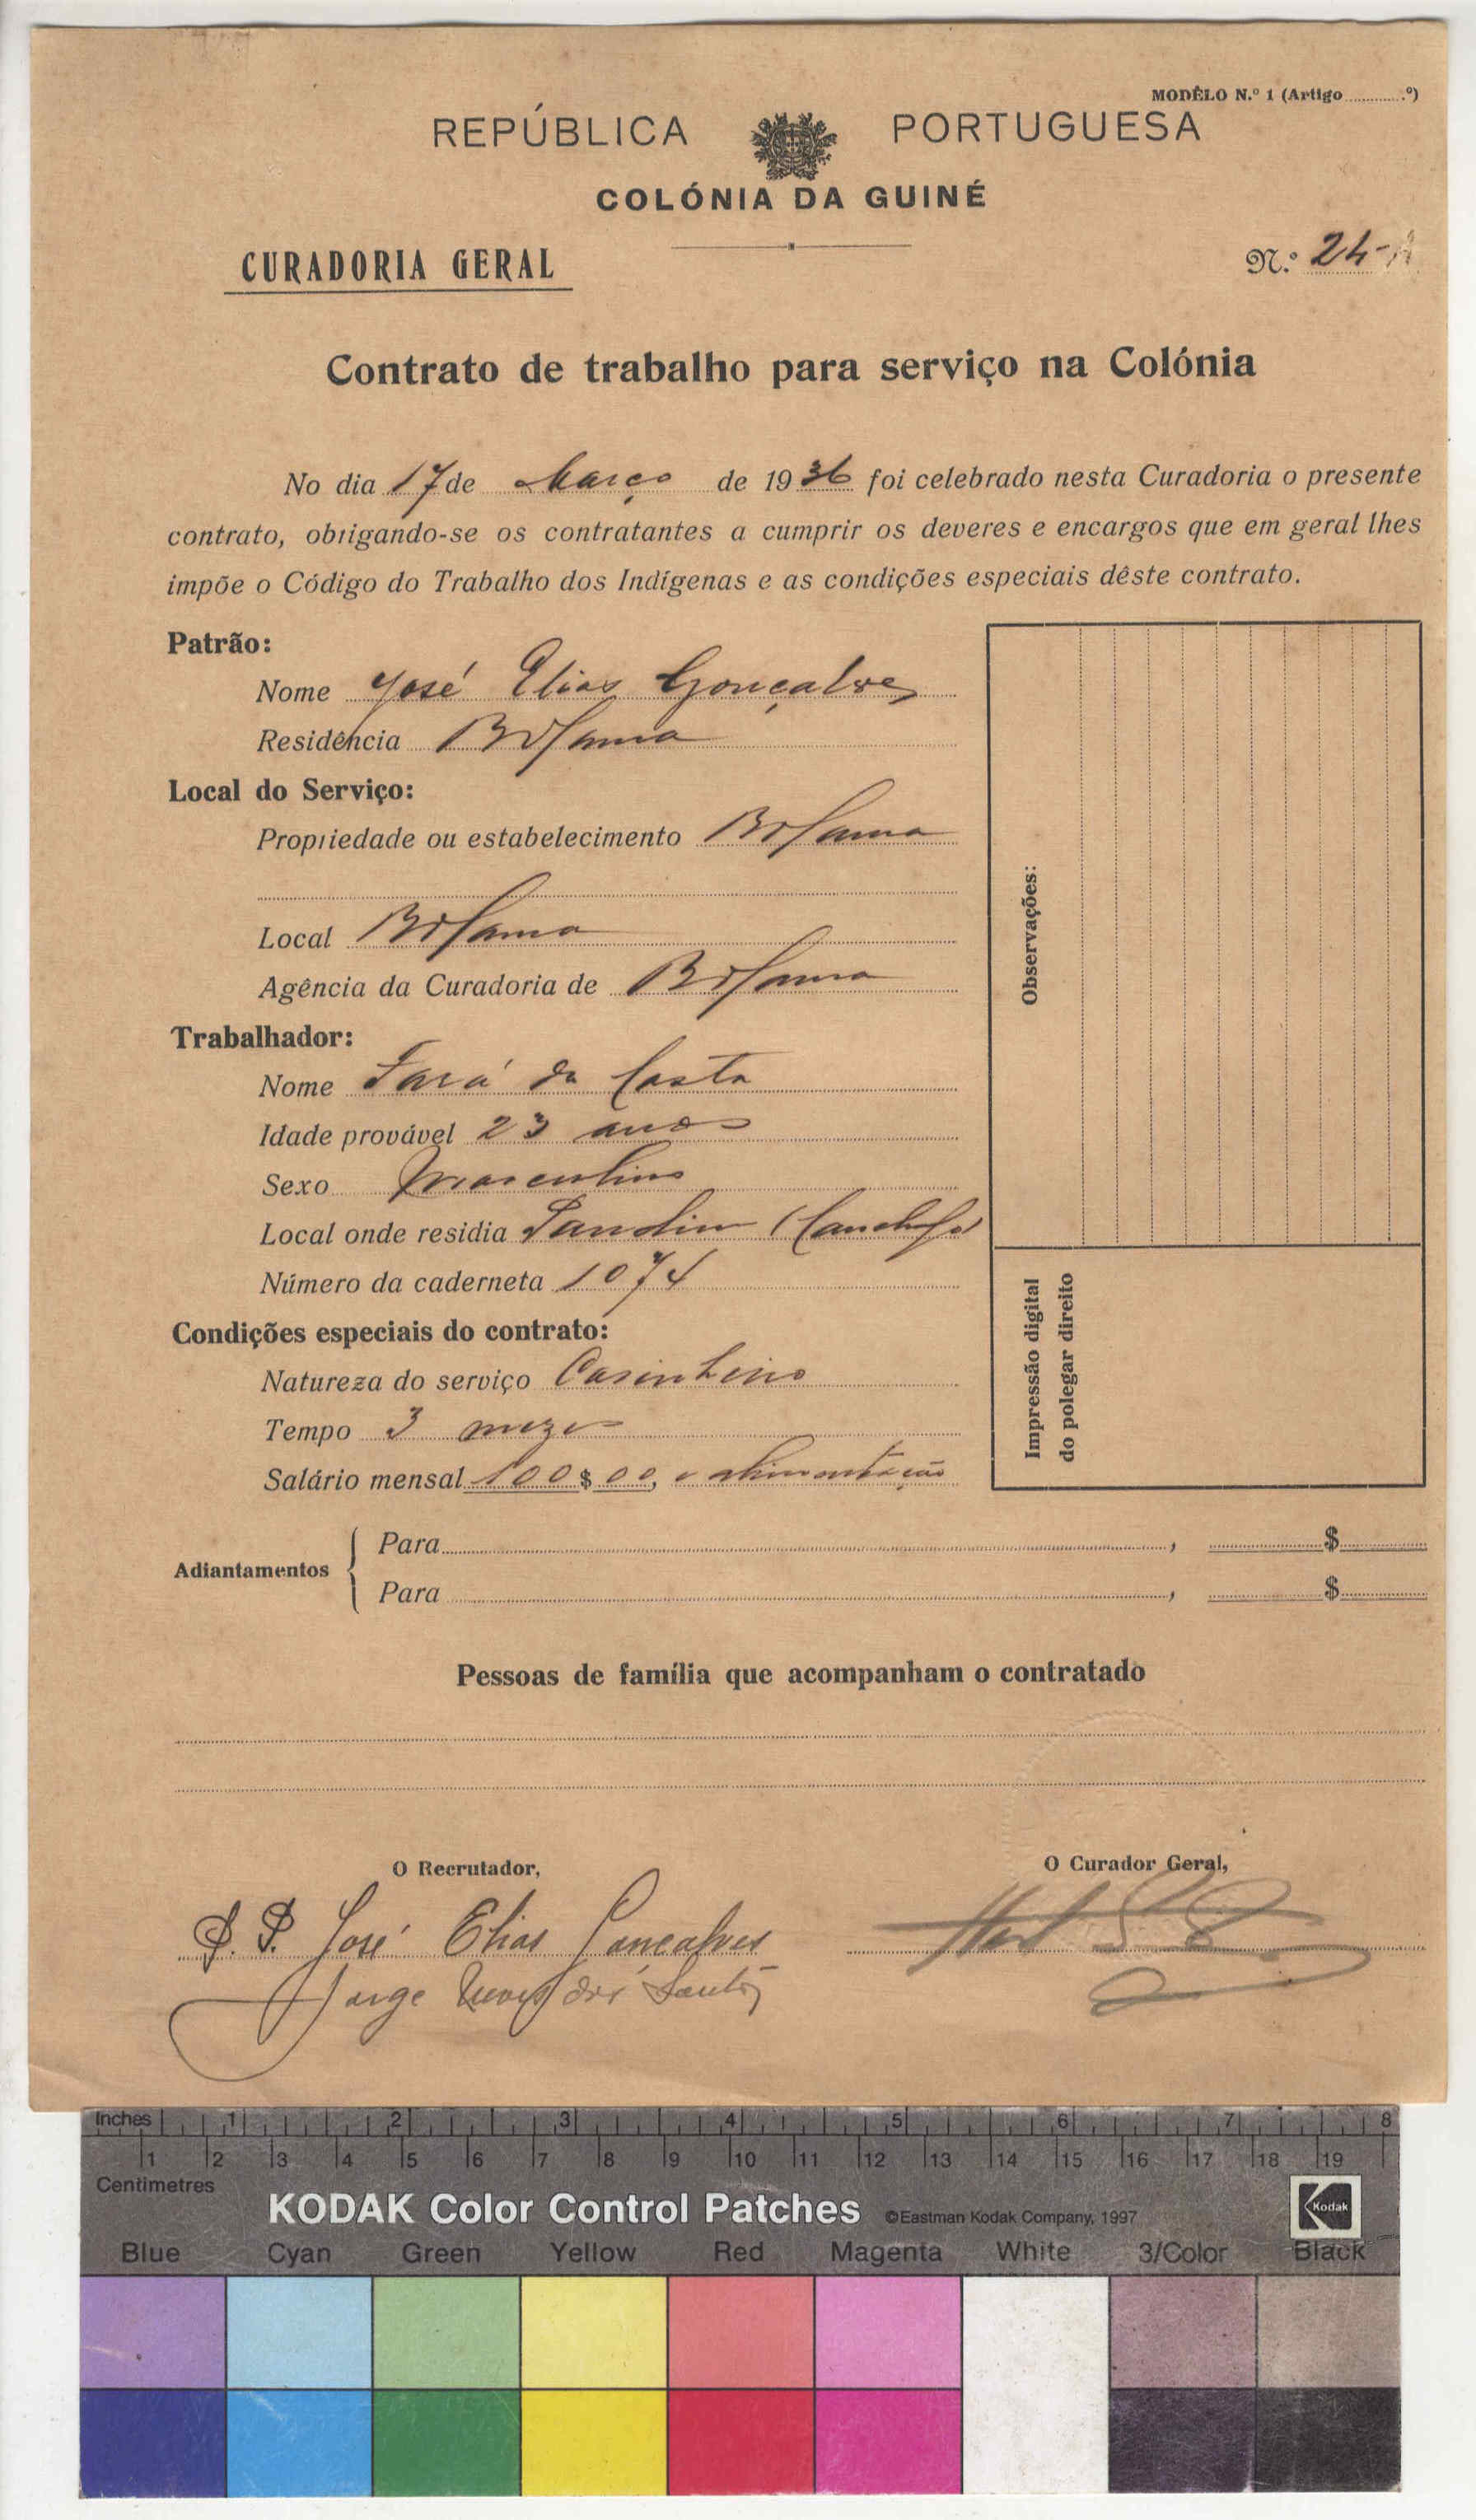 MODÊLO N.º 1 (Artigo ............º)
REPÚBLICA PORTUGUESA
COLÓNIA DA GUINÉ
CURADORIA GERAL
N.º 24-
Contrato de trabalho para serviço na Colónia
No dia 17 de Março de 1936 foi celebrado nesta Curadoria o presente
contrato, obrigando-se os contratantes a cumprir os deveres e encargos que em geral lhes
impõe o Código do Trabalho dos Indígenas e as condições especiais dêste contrato.
Patrão:
Nome José Elias Gonçalves
Residência Bolama
Local do Serviço:
Propriedade ou estabelecimento Bolama
Local Bolama
Agência da Curadoria de Bolama
Trabalhador:
Nome da Costa
Idade provável 23 anos
Sexo Masculino
Local onde residia
Número da caderneta 1074
Condições especiais do contrato:
Natureza do serviço
Tempo 3 mezes
Salário mensal 100$00, e alimentação
Observações:
Impressão digital
do polegar direito
Adiantamentos
Para , $
Para , $
Pessoas de família que acompanham o contratado
O Recrutador,
O Curador Geral,
P. P. José Elias Gonçalves
Jorge dos Santos
Inches 1 2 3 4 5 6 7 8
1 2 3 4 5 6 7 8 9 10 11 12 13 14 15 16 17 18 19
Centimetres
KODAK Color Control Patches ©Eastman Kodak Company, 1997 Kodak
Blue Cyan Green Yellow Red Magenta White 3/Color Black